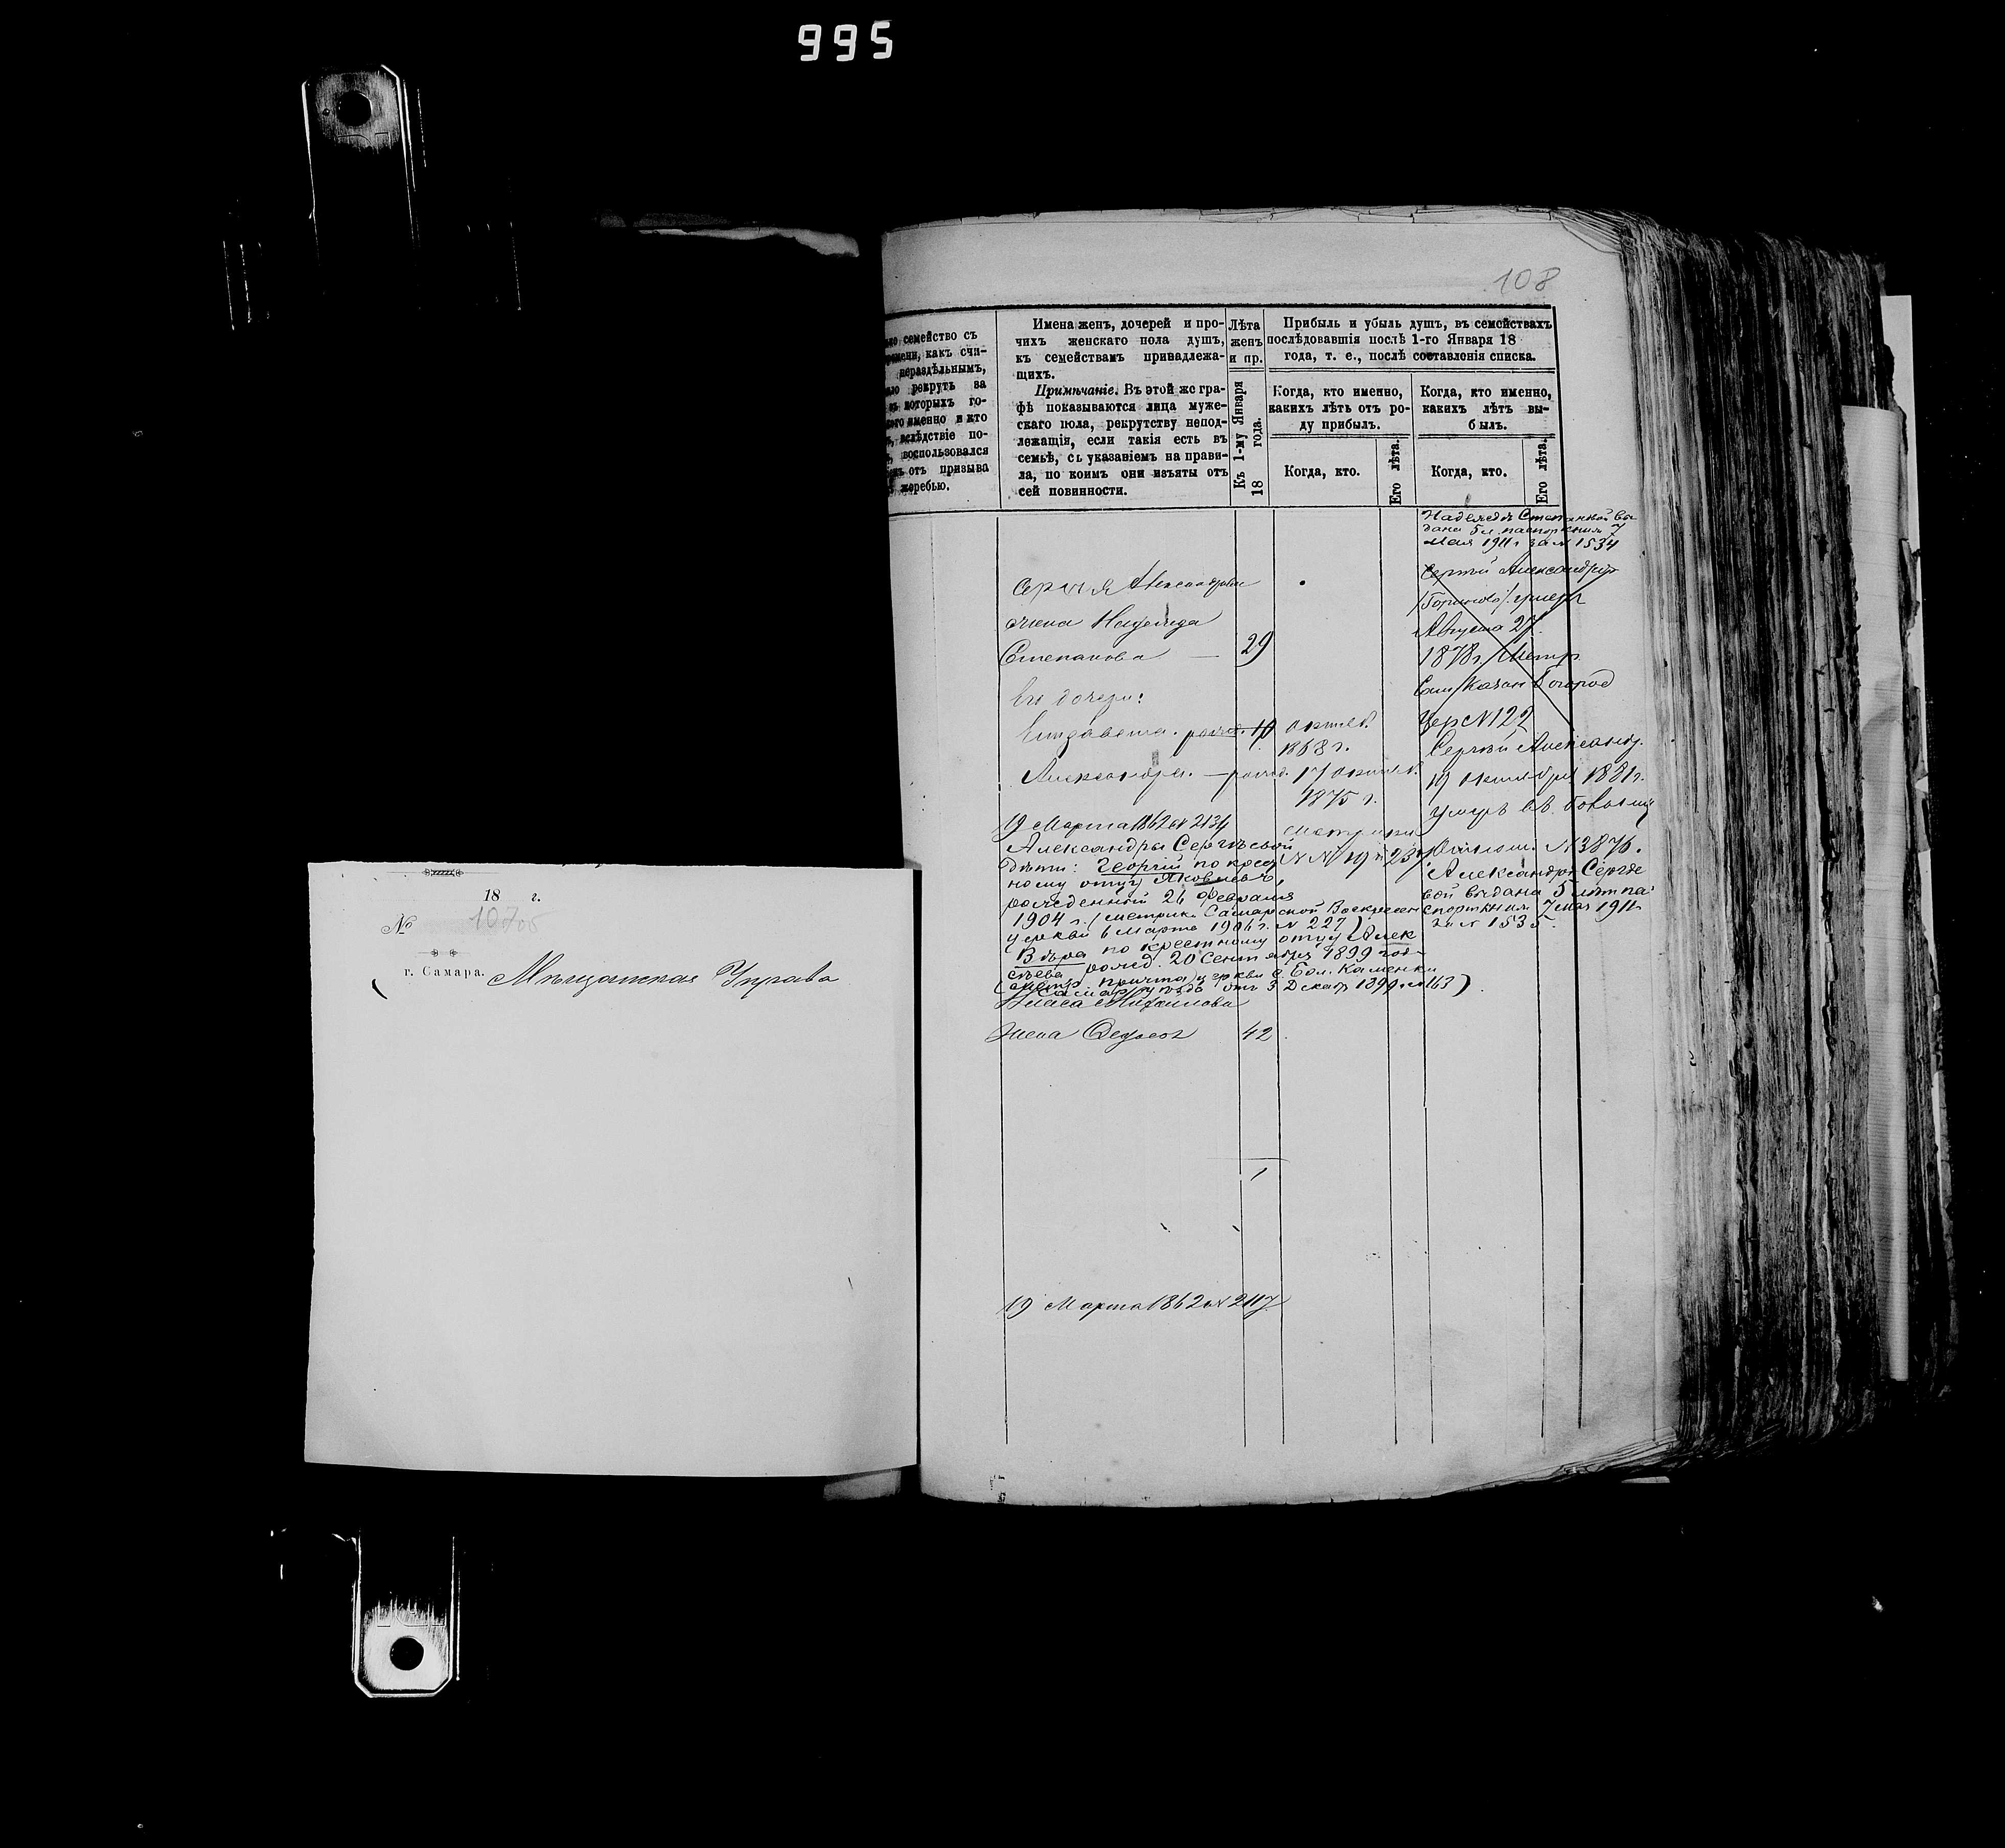 995
108
семейство съ
времени, какъ счи-
нераздѣльнымъ,
рекрутъ за
въ которыхъ го-
кого именно и кто
вслѣдствіе по-
воспользовался
отъ призыва
жеребью.
Имена женъ, дочерей и про-
чихъ женскаго пола душъ,
къ семействамъ принадлежа-
щихъ.
Примѣчаніе. Въ этой же гра-
фѣ показываются лица муже-
скаго пола, рекрутству непод-
лежащія, если такія есть въ
семьѣ, съ указаніемъ на прави-
ла, по коимъ они изъяты отъ
сей повинности.
Лѣта
женъ
и пр.
Къ 1-му Января
18 года.
Прибыль и убыль душъ, въ семействахъ
послѣдовавшія послѣ 1-го Января 18
года, т. е., послѣ составленія списка.
Когда, кто именно,
какихъ лѣтъ отъ ро-
ду прибылъ.
Когда, кто.
Его лѣта.
Когда, кто именно,
какихъ лѣтъ вы-
былъ.
Когда, кто.
Его лѣта.
Сергѣя Александрова
жена Надежда
Степанова — 29
Его дочери:
Елизавета. рожд. 10 октяб.
1868 г.
Александра. — рожд. 17 октяб.
1875 г.
19 Марта 1862 № 2134
Метрики
№№ 19 и 237
Александры Сергѣевой
дѣти: Георгій по крест
ному отцу Яковлевъ,
рожденный 26 Февраля
1904 г. (метрика Самарской Воскресен
церкви 6 Марта 1906 г. № 227)
Вѣра по крестному отцу Алек
сѣева рожд. 20 Сентября 1899 года
(метр. причта церкви с. Бол. Каменки
Самар. уѣзда отъ 3 Декабр 1899 № 163).
Власа Михаилова
жена Ѳедосья 42
1
19 Марта 1862 № 2117
Надеждѣ Степановой вы
дана 5 л. паспор книж 7
Мая 1911 г за № 1534
Сергѣй Александровъ
умеръ
Августа 27
1878 г. Метр
Сам. Казан Богород
Цер № 122
Сергѣй Александр.
19 октября 1881 г.
умеръ
№ 3876.
Александрѣ Сергѣе
вой выдана 5 лѣт па
спорт книж 7 мая 1911
за № 1535.
18 г.
№
г. Самара.
Мѣщанская Управа